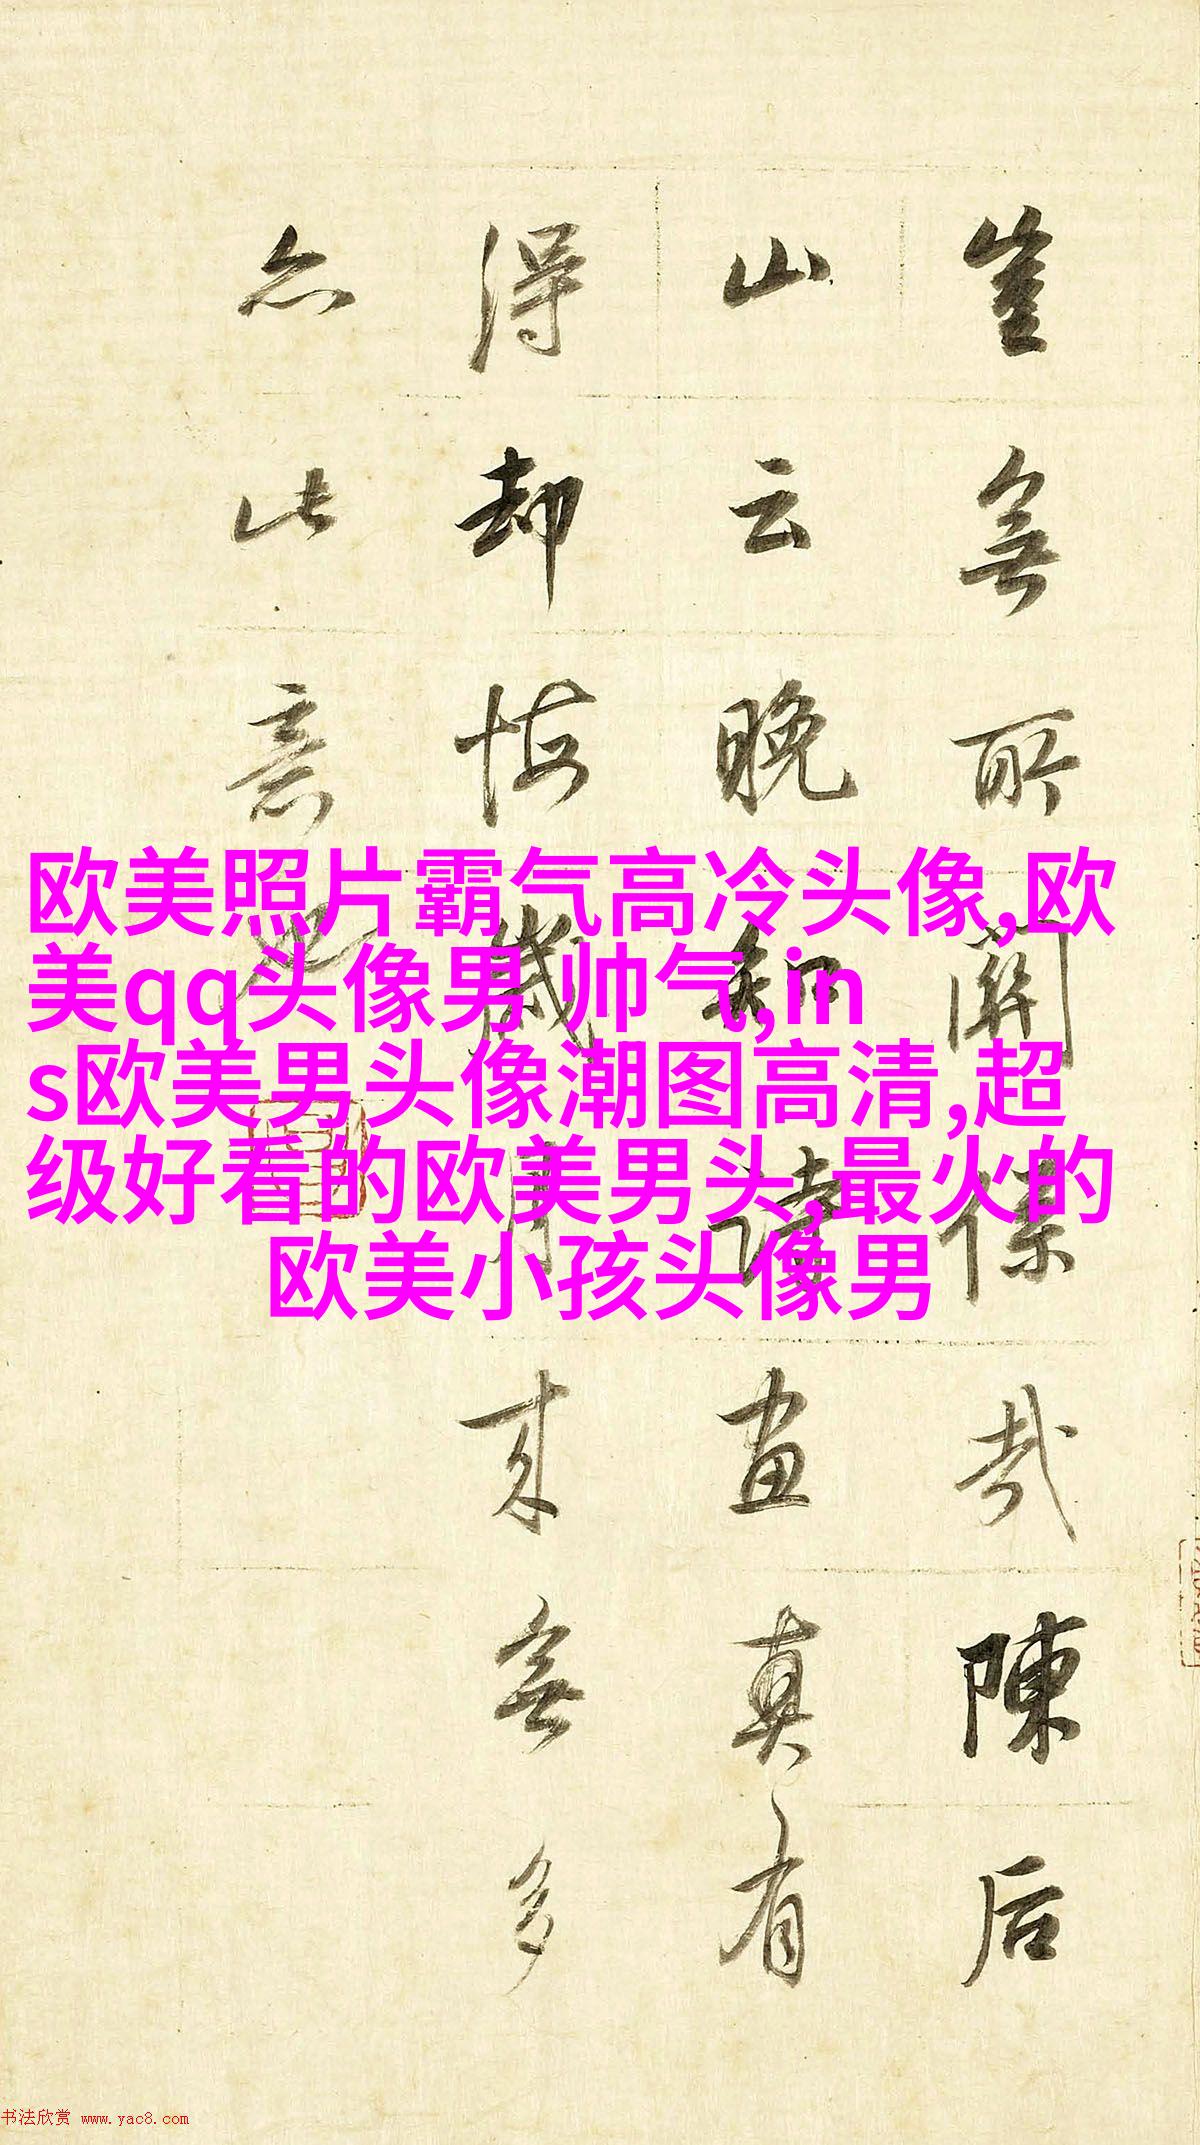 豈無所關係哉陳后
山云晚知讀畫真有
得却悔歲月来無多
亦此意也
欧美照片霸气高冷头像,欧
美qq头像男 帅气,in
s欧美男头像潮图高清,超
级好看的欧美男头,最火的
欧美小孩头像男
书法欣赏 www.yac8.com